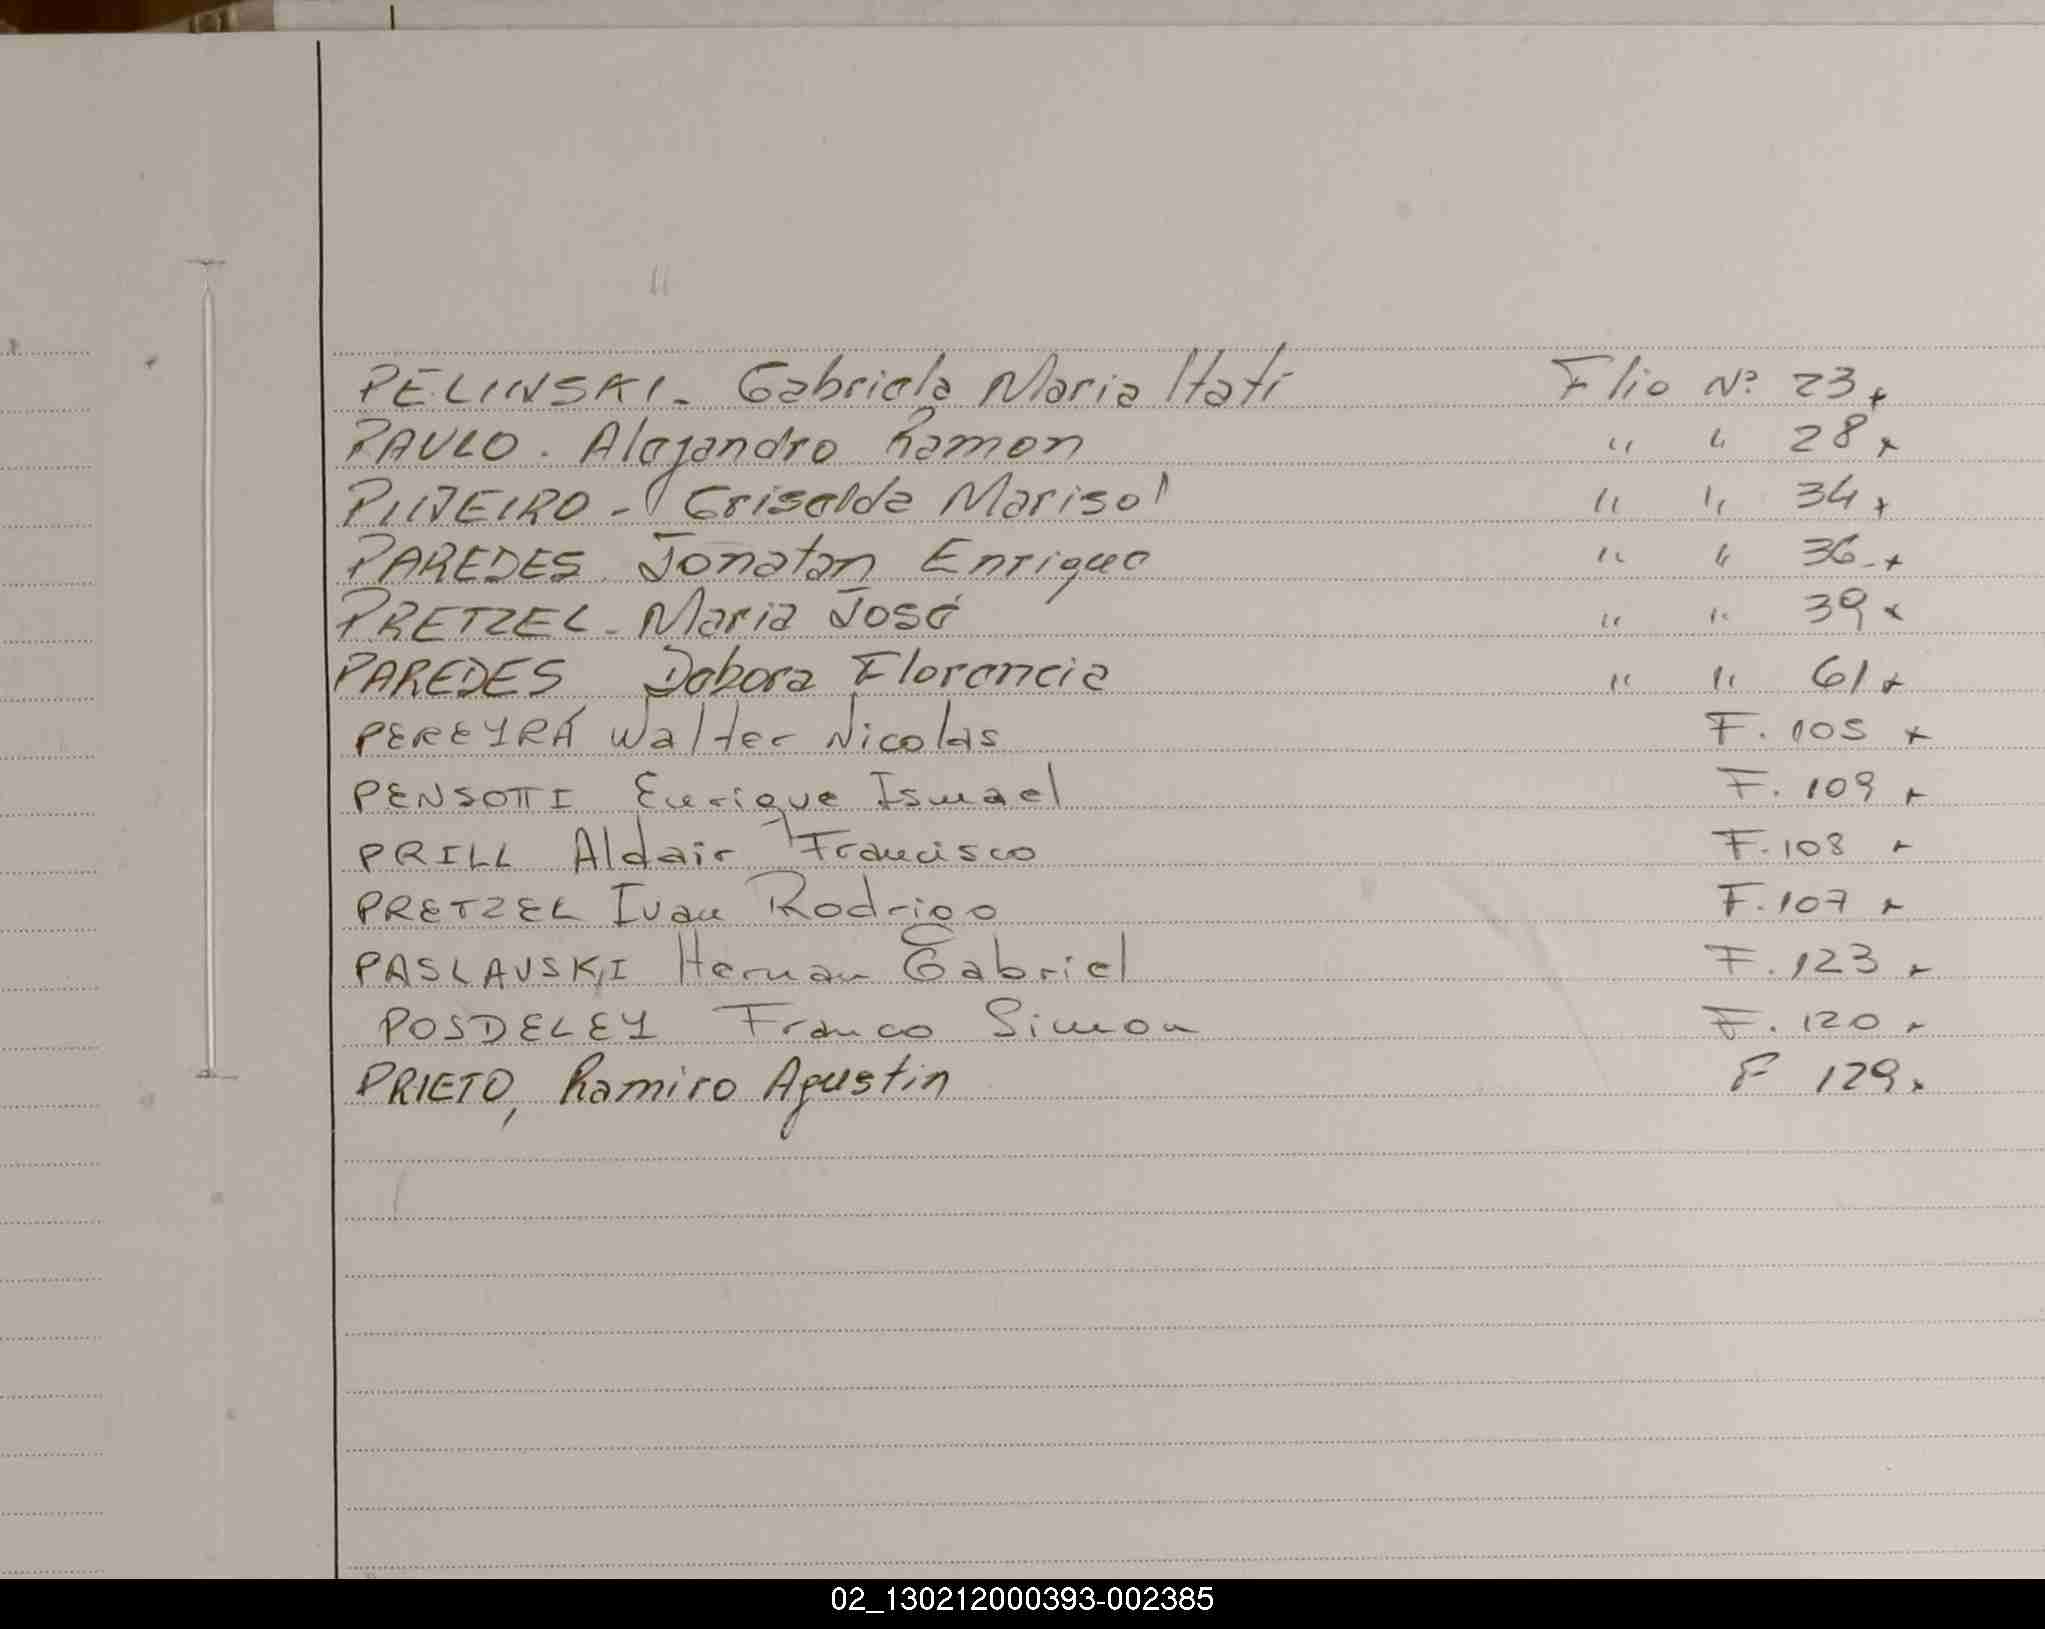 PELINSKI - Gabriela Maria Itatí Flio Nº 23 x
PAULO . Alejandro Ramon " " 28 x
PIÑEIRO - Griselda Marisol " " 34 x
PAREDES Jonatan Enrique " " 36 - x
PRETZEL - Maria José " " 39 x
PAREDES Debora Florencia " " 61 x
PEREYRA Walter Nicolas F. 105 x
PENSOTTI Enrique Ismael F. 109 x
PRILL Aldair Francisco F. 108 x
PRETZEL Ivan Rodrigo F. 107 x
PASLAVSKI Hernan Gabriel F. 123 x
POSDELEY Franco Simon F. 120 x
PRIETO, Ramiro Agustin F 129 x
02_130212000393-002385